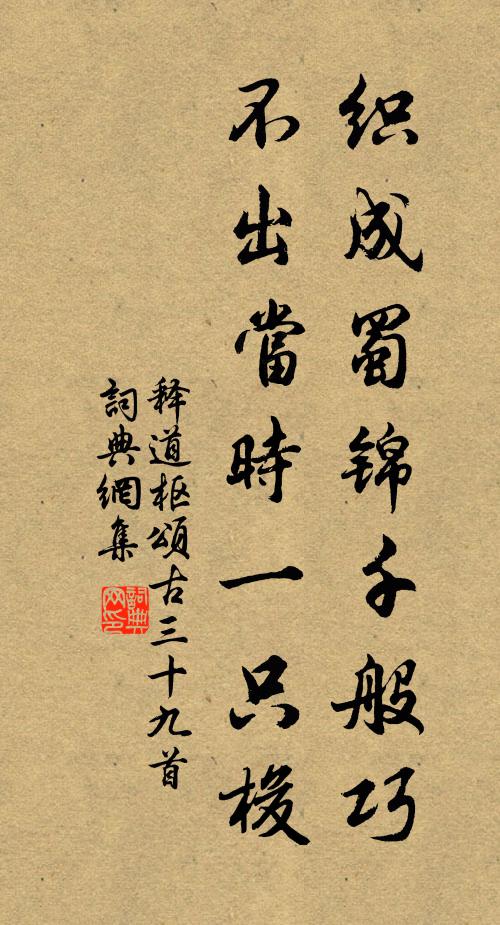 织成蜀锦千般巧
不出當時一只梭
释道枢頌古三十九首
詞典網集
詞典网印